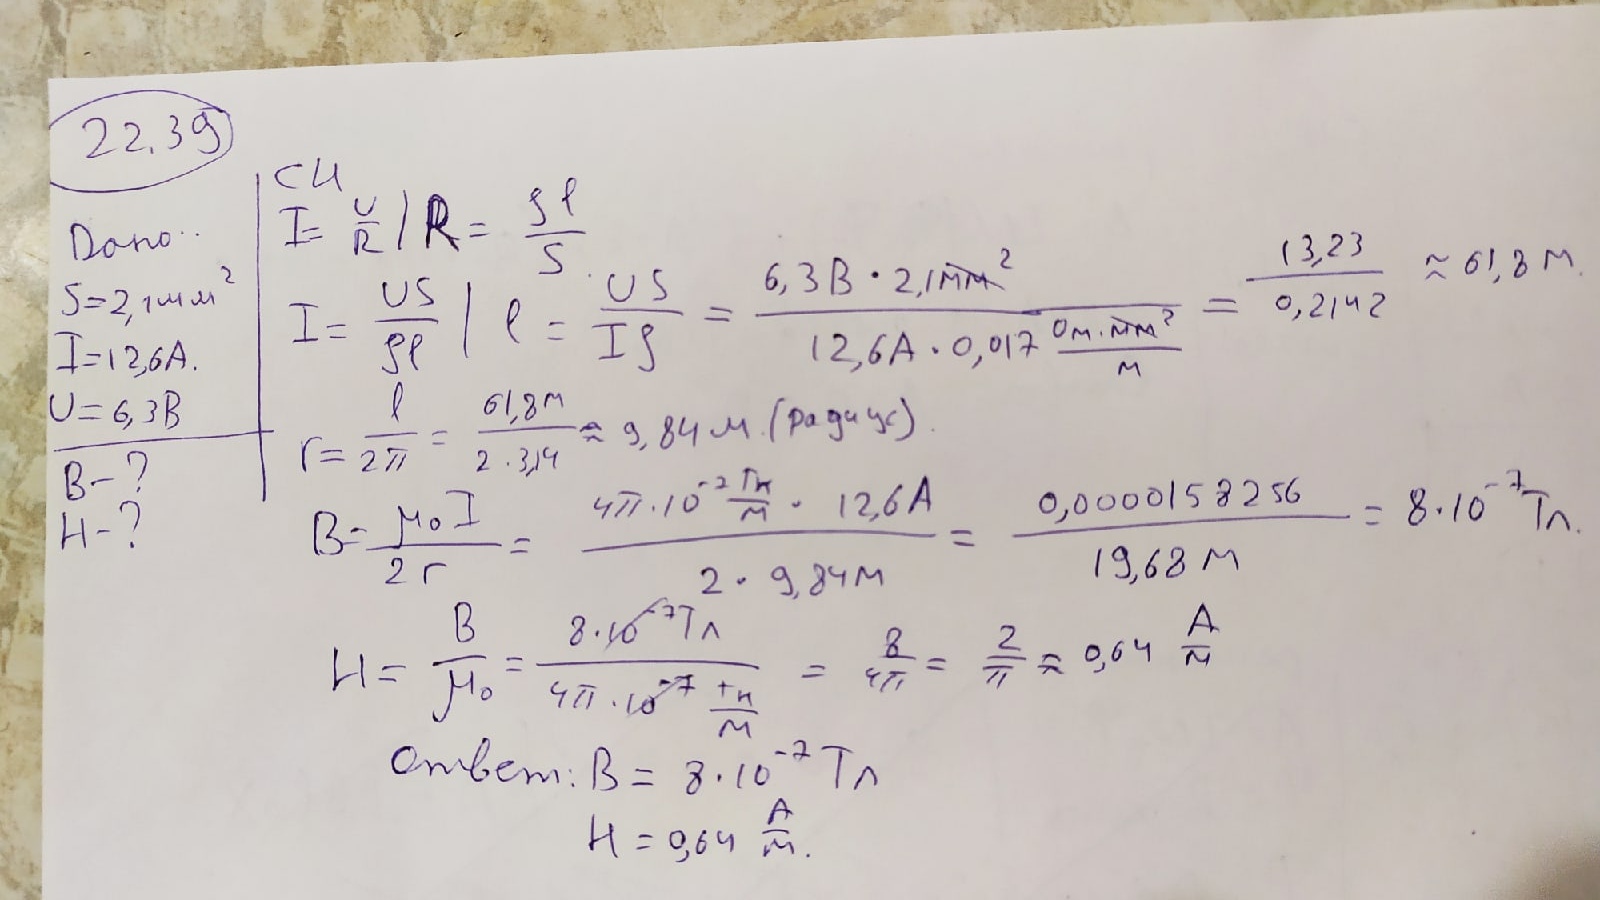 22.39
Дано:
S=2,1мм²
I=12,6А.
U=6,3В
В-?
H-?
СИ
I= U/R | R= ρl/S
I= US/ρl | l= US/Iρ = 6,3В·2,1мм² / 12,6А·0,017 Ом·мм²/м = 13,23/0,2142 ≈ 61,8 м.
r= l/2π = 61,8м/2·3,14 ≈ 9,84 м. (радиус).
В= μ₀I/2r = 4π·10⁻⁷ Гн/м · 12,6А / 2·9,84м = 0,0000158256/19,68 м = 8·10⁻⁷ Тл.
H= В/μ₀ = 8·10⁻⁷Тл / 4π·10⁻⁷ Гн/м = 8/4π = 2/π ≈ 0,64 А/м
Ответ: В= 8·10⁻⁷ Тл
H=0,64 А/м.